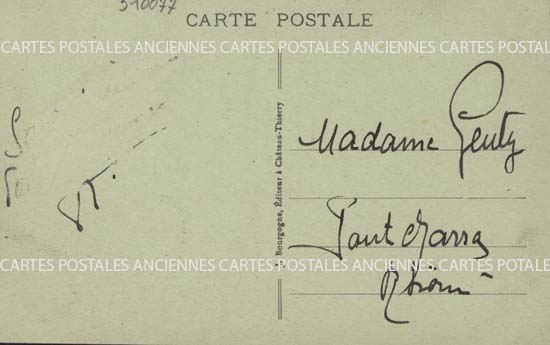 510077
CARTE POSTALE
CARTES POSTALES ANCIENNES CARTES POSTALES ANCIENNES CARTES POSTALES
Bourgogne, Éditeur à Château-Thierry
Madame Genty
Pont charra
Rhône
CARTES POSTALES ANCIENNES CARTES POSTALES ANCIENNES CARTES POTALES